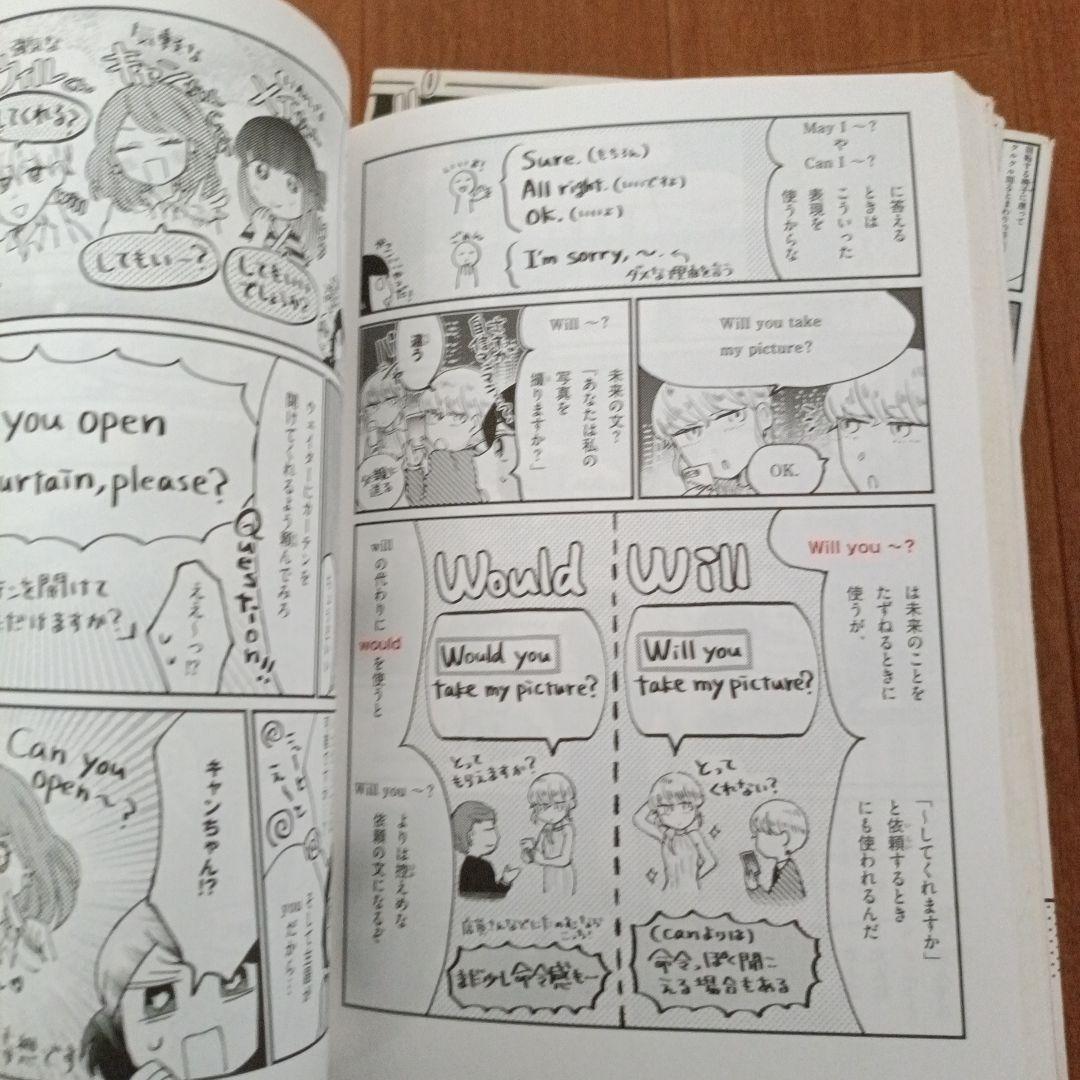 May I ～?
や
Can I ～?
に答える
ときは
こういった
表現を
使うからな
Sure. (もちろん)
All right. (いいですよ)
OK. (いいよ)
I'm sorry, ～.
ダメな理由を言う
Will you take
my picture?
OK.
Will ～?
未来の文?
「あなたは私の
写真を
撮りますか?」
違う
Will you ～?
は未来のことを
たずねるときに
使うが、
「～してくれますか」
と依頼するとき
にも使われるんだ
Will
Will you
take my picture?
とって
くれない?
(canよりは)
命令っぽく聞こ
える場合もある
Would
Would you
take my picture?
とって
もらえますか?
店員さんなどにたのむなら
こっち!
まだ少し命令感も…
will
の代わりに
would
を使うと
Will you ～?
よりは控えめな
依頼の文になるぞ
してくれる?
してもい～?
してもいい
でしょうか?
ウェイターにカーテンを
開けてくれるよう頼んでみろ
Question!!
you open
urtain, please?
を開けて
だけますか?」
ええ～っ!?
キャンちゃん!?
Can you
open ～?